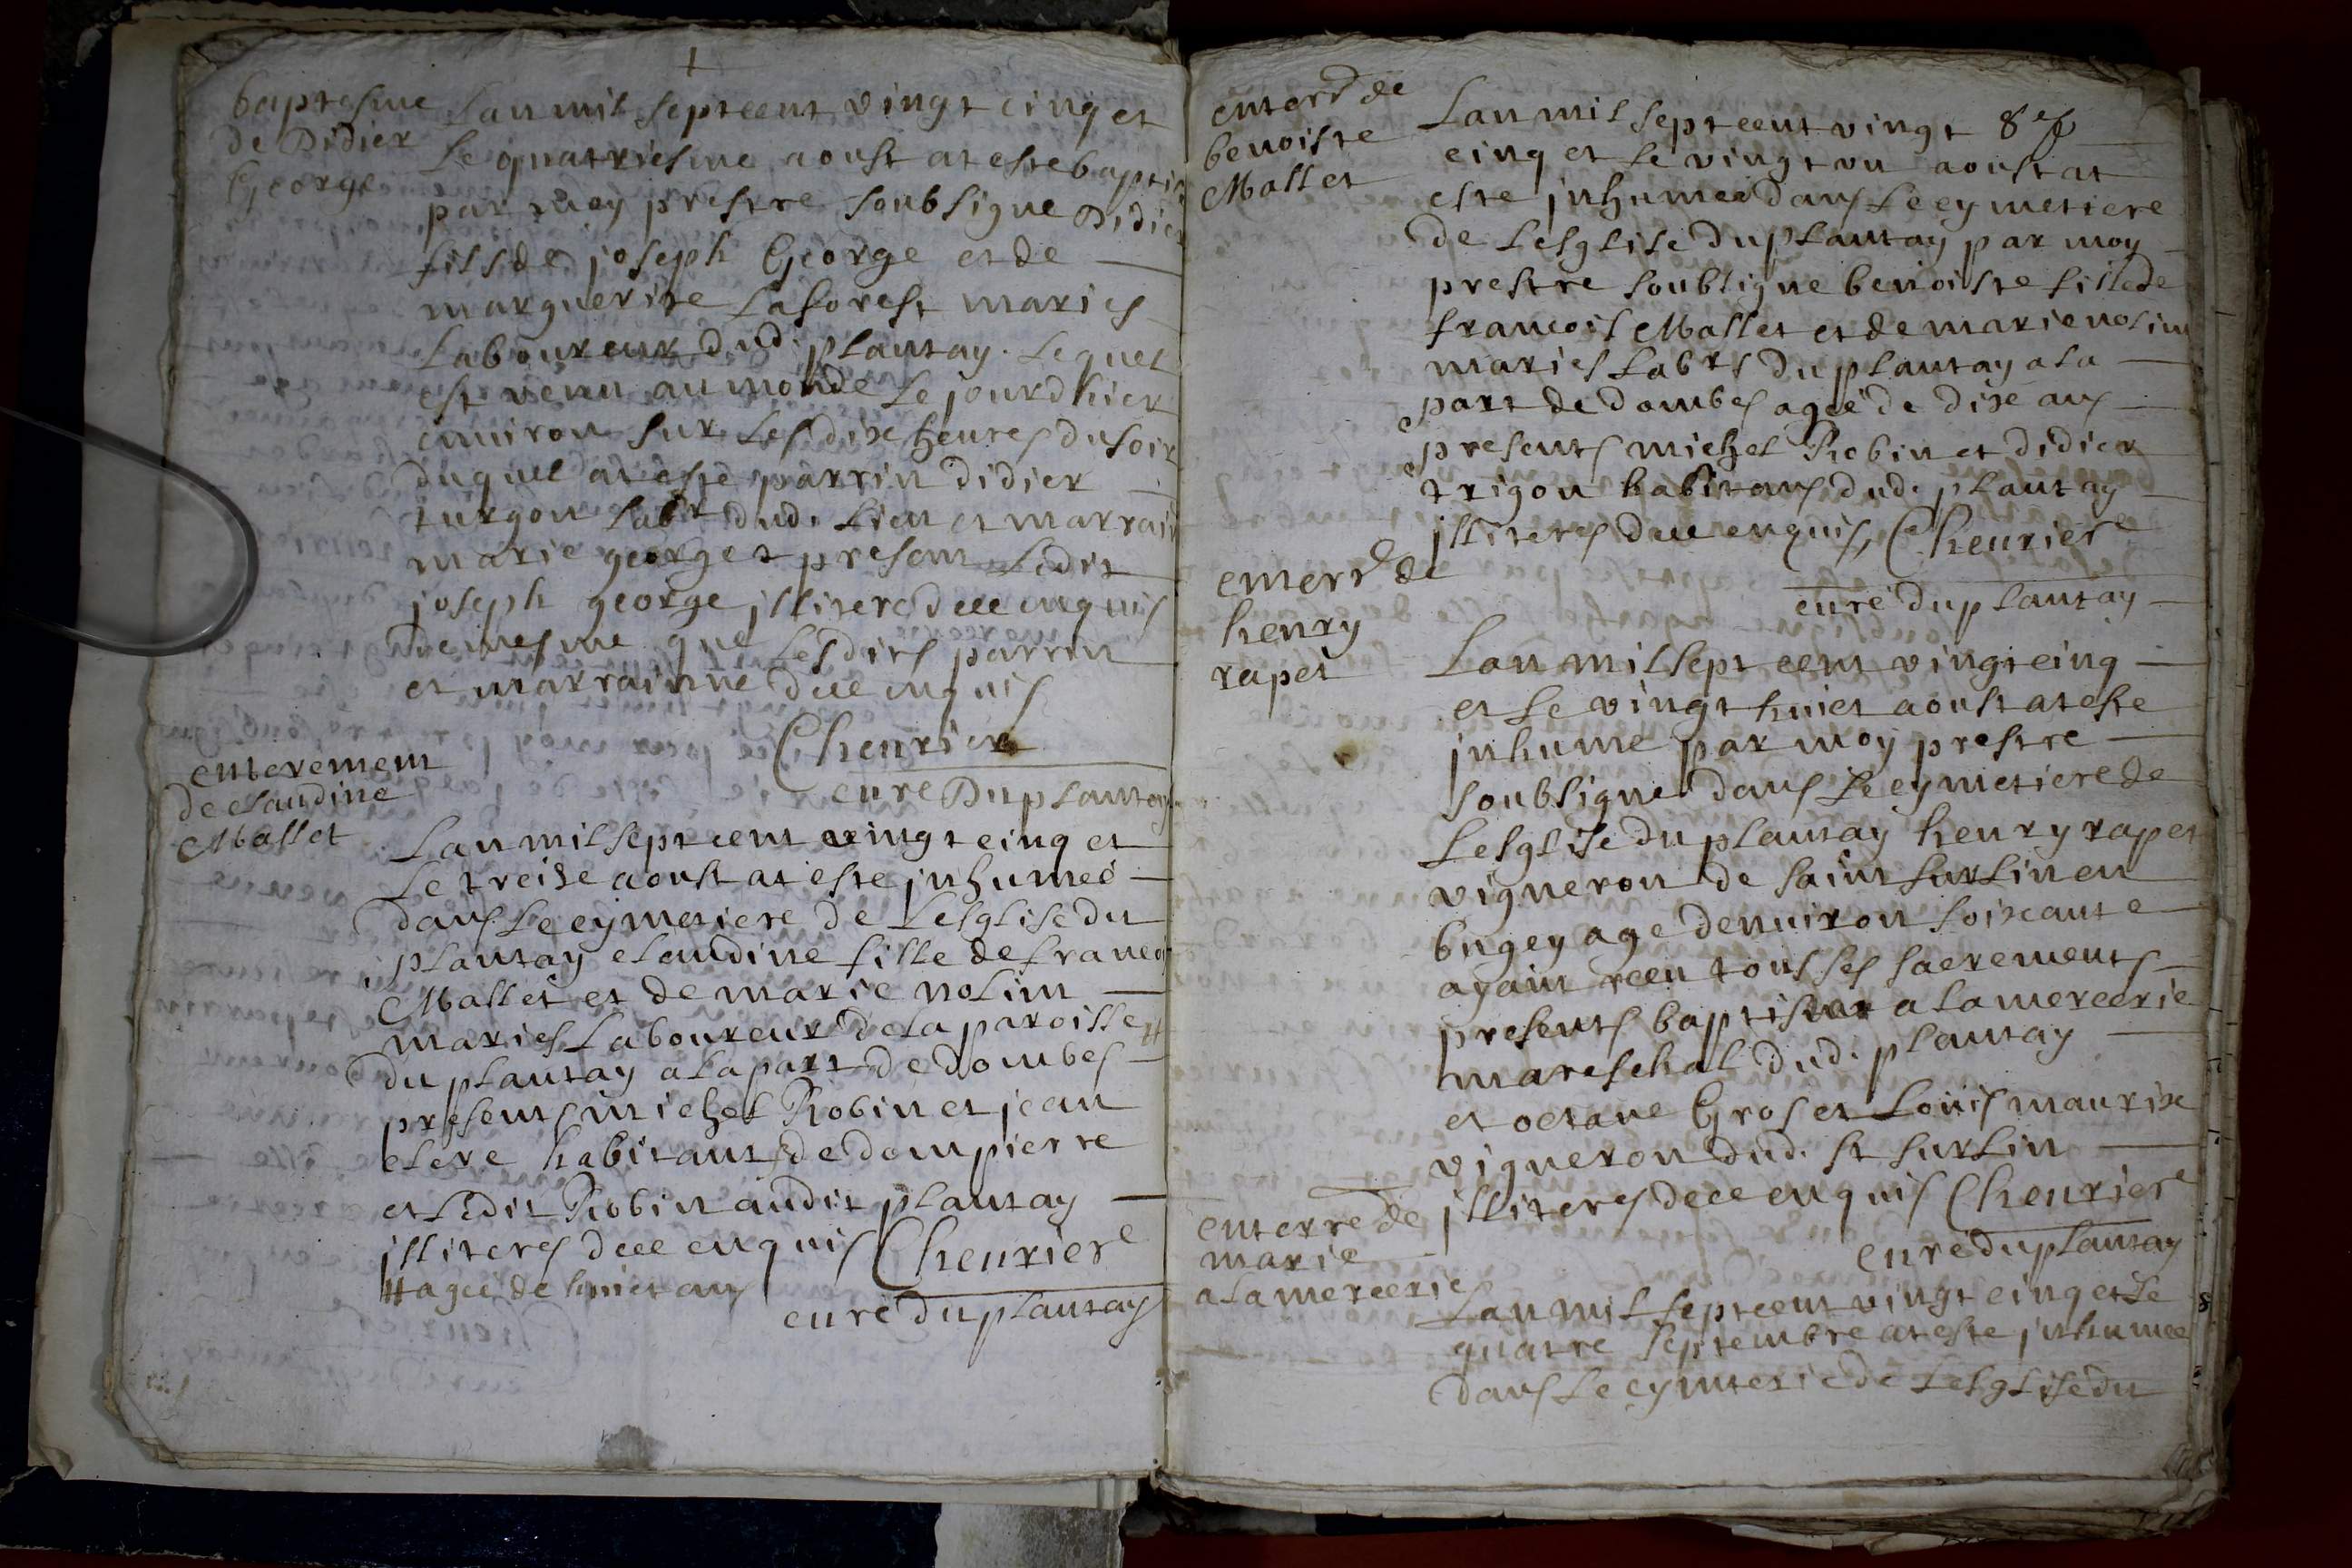 baptesme
de Didier
George
Lan mil sept cent vingt cinq et
Le quatriesme aoust at este baptisé
par moy prestre soubsigne Didier
fils de joseph George et de
marguerite Laforest maries
Laboureur dud. plantay. Lequel
est venu au monde Le jourdhier
enuiron sur Les dixe heures du soir
duquel at este parrin didier
turgon Labr dud. Lieu et marrain
marie george presens Ledit
joseph george jllitere dece enquis
de mesme que Lesdits parrin
et marrainne dece enquis
Cheurier
curé Du plantay
enterement
de claudine
Mallet
Lan mil sept cent vingt cinq et
Le treize aoust at este jnhumeé
dans Le cymetiere de Lesglise du
plantay claudine fille de francois
Mallet et de marie nolim
maries Laboureur de La paroisse #
du plantay a La part de dombes
presents michel Robin et jean
clere habitants de dompierre
et Ledit Robin audit plantay
jlliteres dece enquis Cheuriere
# ageé de huict ans
curé du plantay
enterrt de
benoiste
Mallet
Lan mil sept cent vingt
cinq et Le vingt vn aoust at
este jnhumeé dans Le cymetiere
de Lesglise du plantay par moy
prestre soubsigne benoiste fille de
francois Mallet et de marie nolim
maries Labrs du plantay a La
part de dombes ageé de dixe ans
presents michel Robin et didier
trigon habitans dud. plantay
jlliteres dece enquis, Cheuriere
curé du plantay
enterrt de
henry
rapet
Lan mil sept cent vingt cinq
et Le vingt huict aoust at este
jnhumé par moy prestre
soubsigne dans Le cymetiere de
Lesglise du plantay henry rapet
vigneron de saint surlin en
bugey age denuiron soixcante
ayant receu tous ses sacrements
presents baptiste a La mercerie
mareschal dud. plantay
et octaue Gros et Louis maurixe
vigneron dud. st surlin
jlliteres dece enquis Cheuriere
curé du plantay
enterre de
marie
a La mercerie
Lan mil sept cent vingt cinq et Le
quatre septembre at este jnhumee
dans Le cymterie de Lesglise du